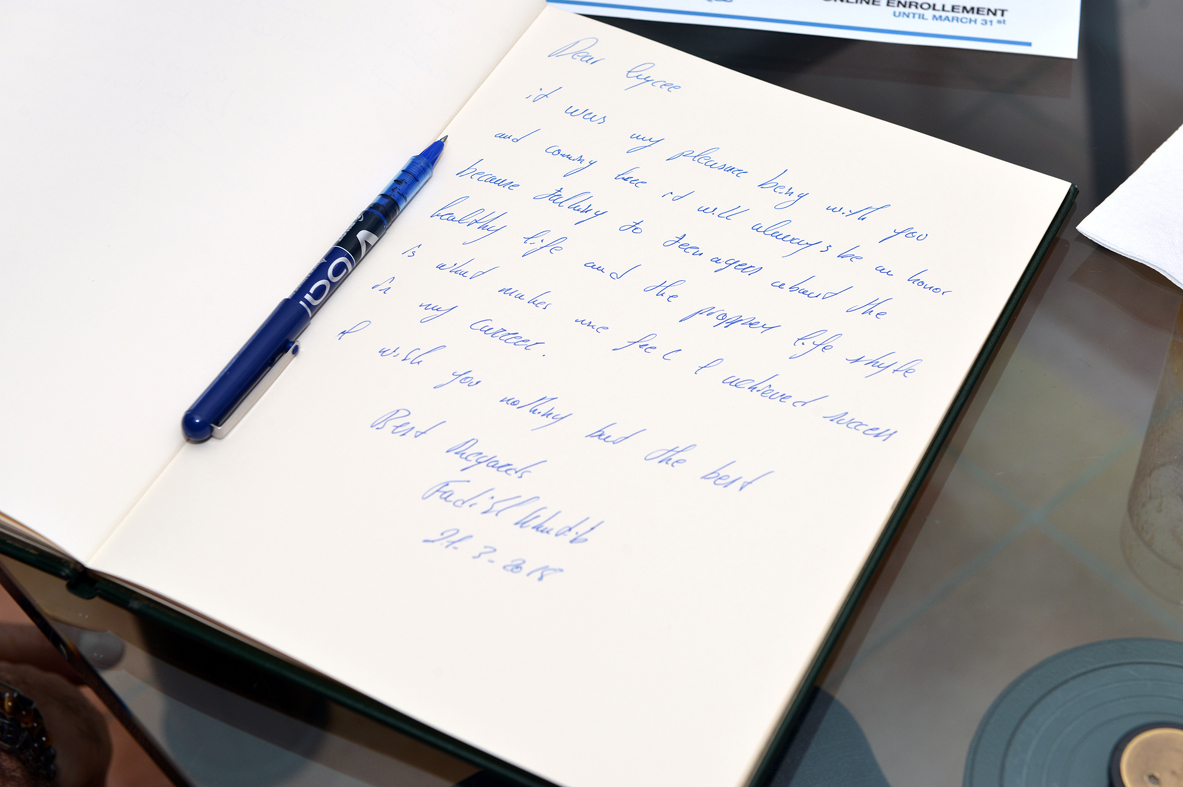 ONLINE ENROLLEMENT
UNTIL MARCH 31st
Dear Lycee
it was my pleasure being with you
and coming here it will always be an honor
because talking to teenagers about the
healthy life and the propper life style
is what makes me feel I achieved success
in my carreer.
I wish you nothing but the best
Best Regards
Fadi El Khatib
21.3.2018